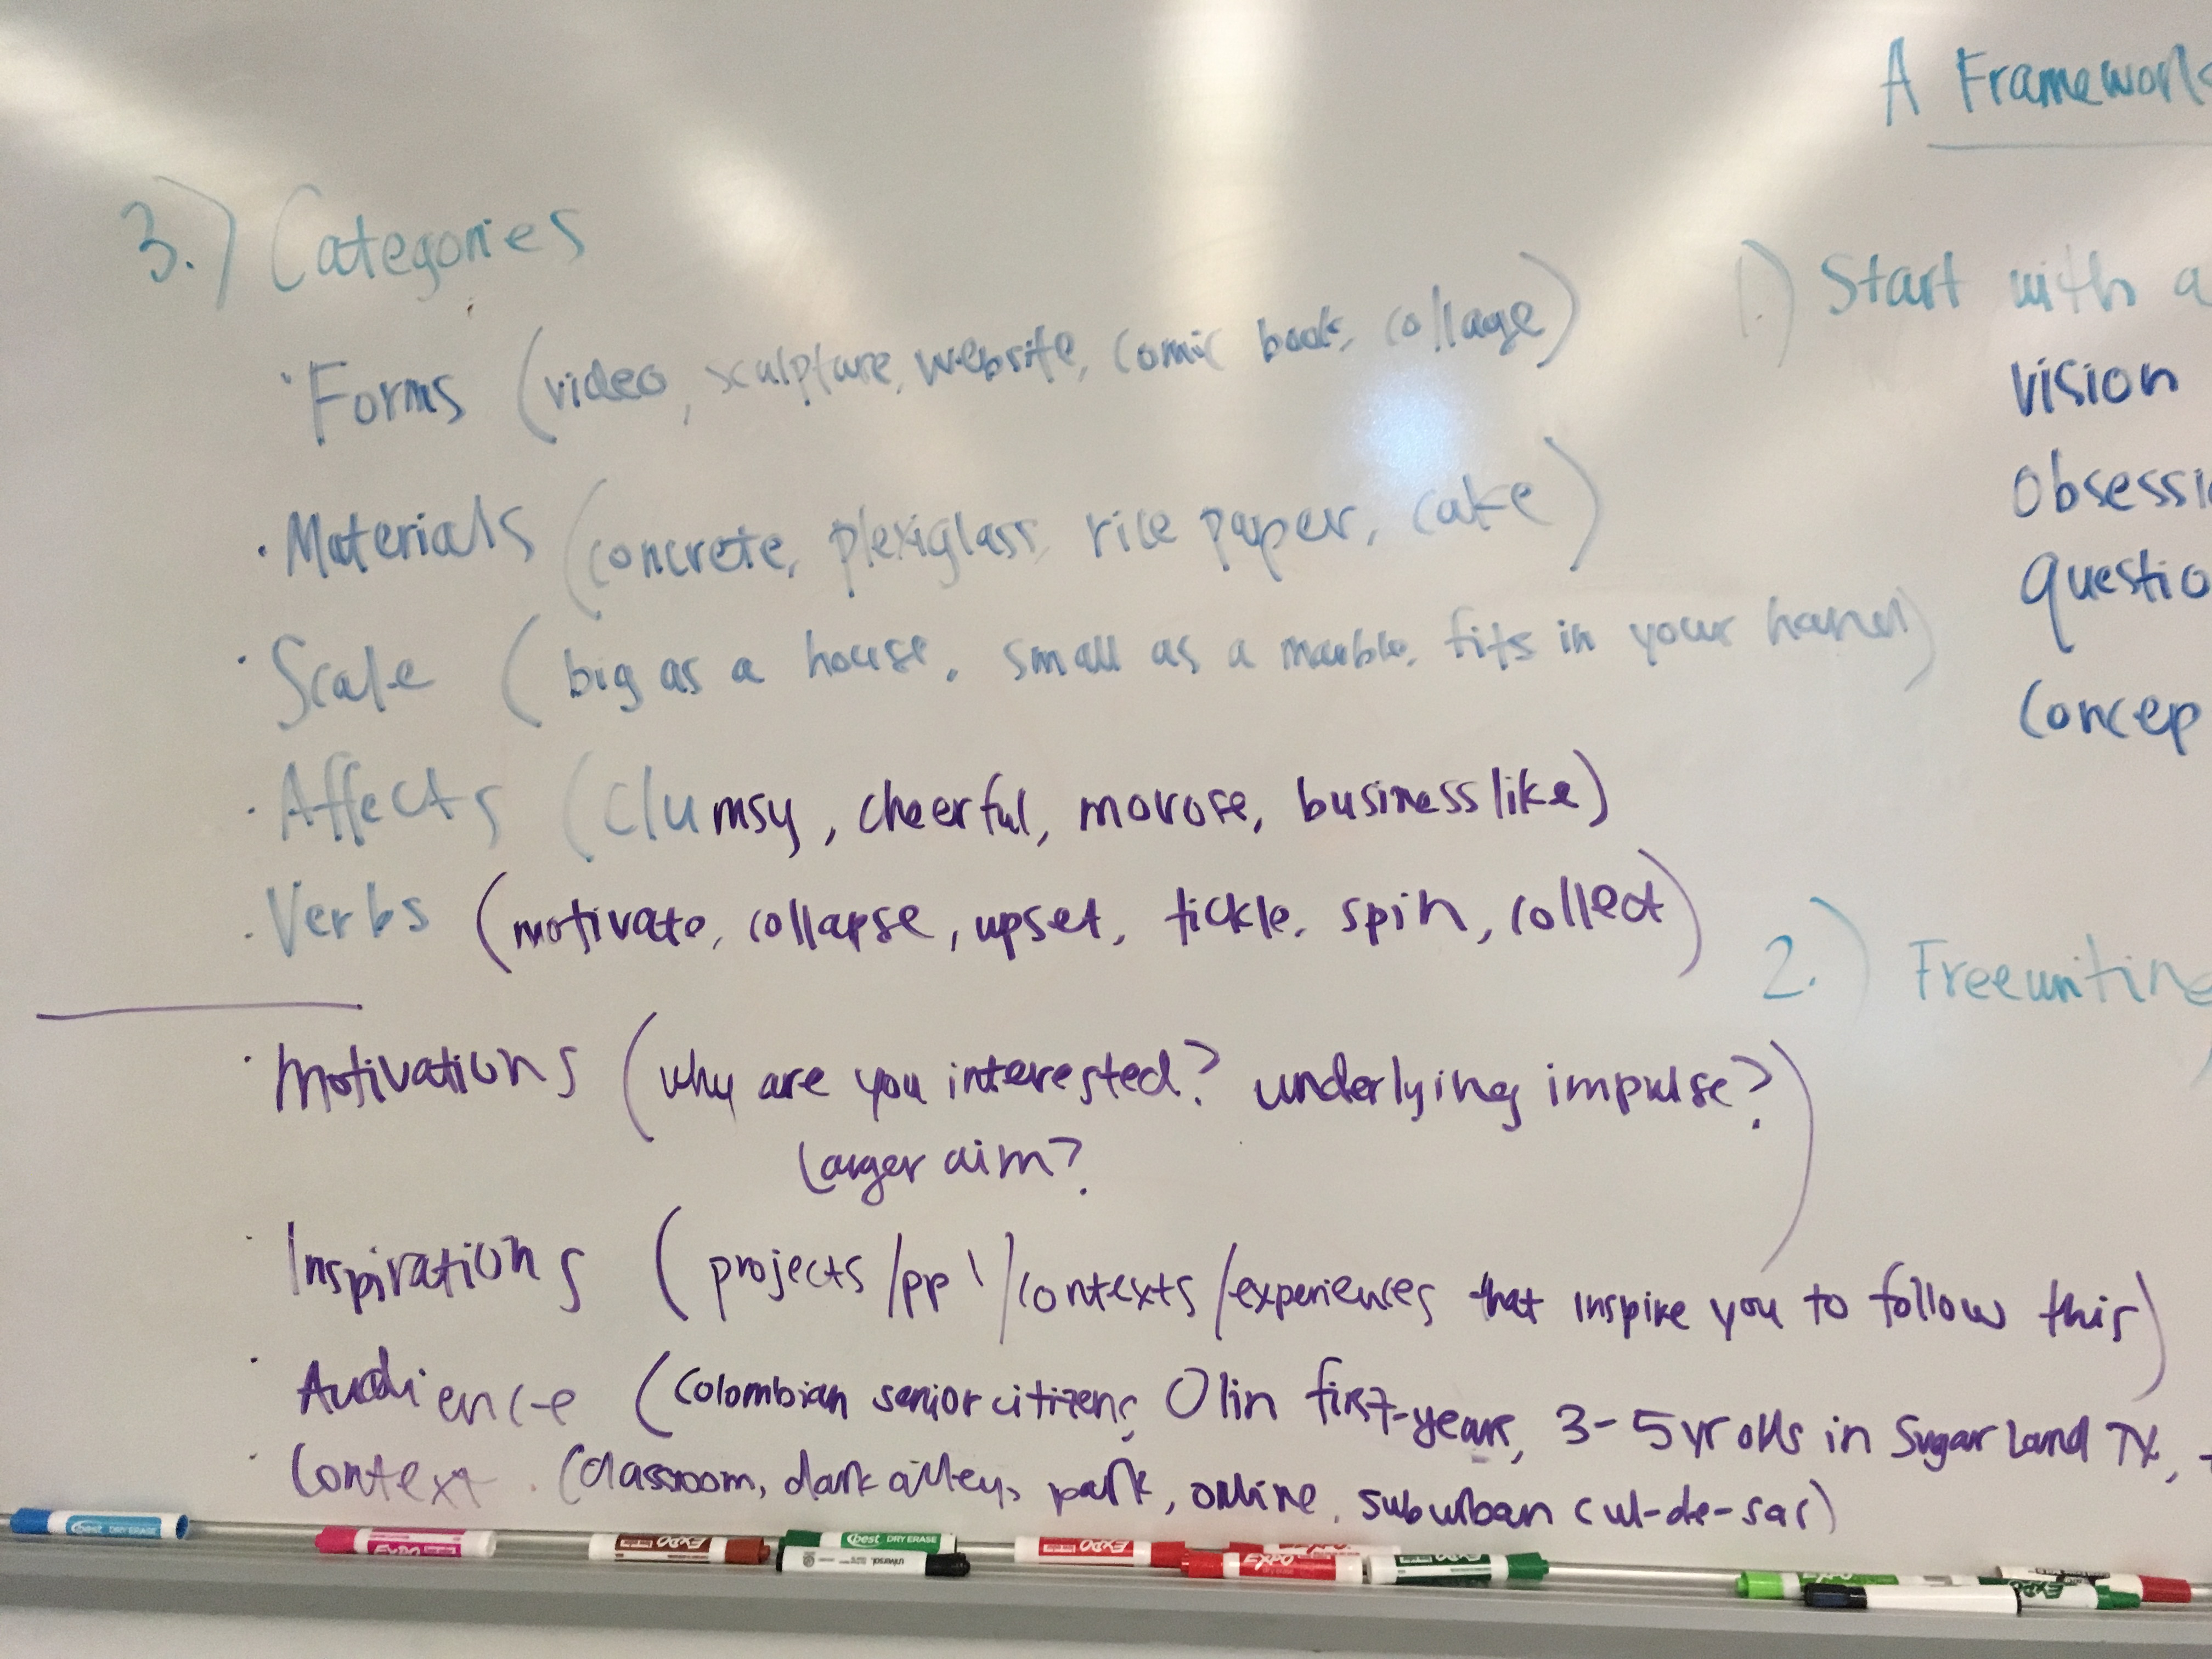 A Framework
3.) Categories
· Forms (video, sculpture, website, comic book, collage)
· Materials (concrete, plexiglass, rice paper, cake)
· Scale (big as a house, small as a marble, fits in your hand)
· Affects (clumsy, cheerful, morose, businesslike)
· Verbs (motivate, collapse, upset, tickle, spin, collect)
· Motivations (why are you interested? underlying impulse?
Larger aim?)
· Inspirations (projects/ppl/contexts/experiences that inspire you to follow this)
· Audience (Colombian senior citizens, Olin first-years, 3-5 yr olds in Sugar Land TX,
· Context (classroom, dark alley, park, online, suburban cul-de-sac)
1.) Start with a
vision
obsessi
questio
concep
2.) Freewriting
best DRY ERASE
EXPO
EXPO
best DRY ERASE
universal
EXPO
EXPO
EXPO
EXPO
EXPO